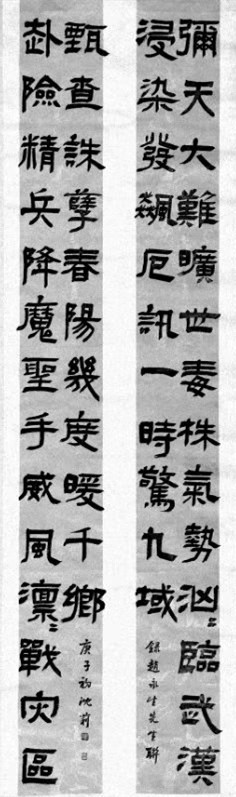 彌天大難曠世毒株氣勢汹〻臨武漢
浸染發飆厄訊一時驚九域
録趙永生先生聯
赴險精兵降魔聖手威風凛〻戰灾區
甄查誅孽春陽幾度暖千鄉
庚子初沈